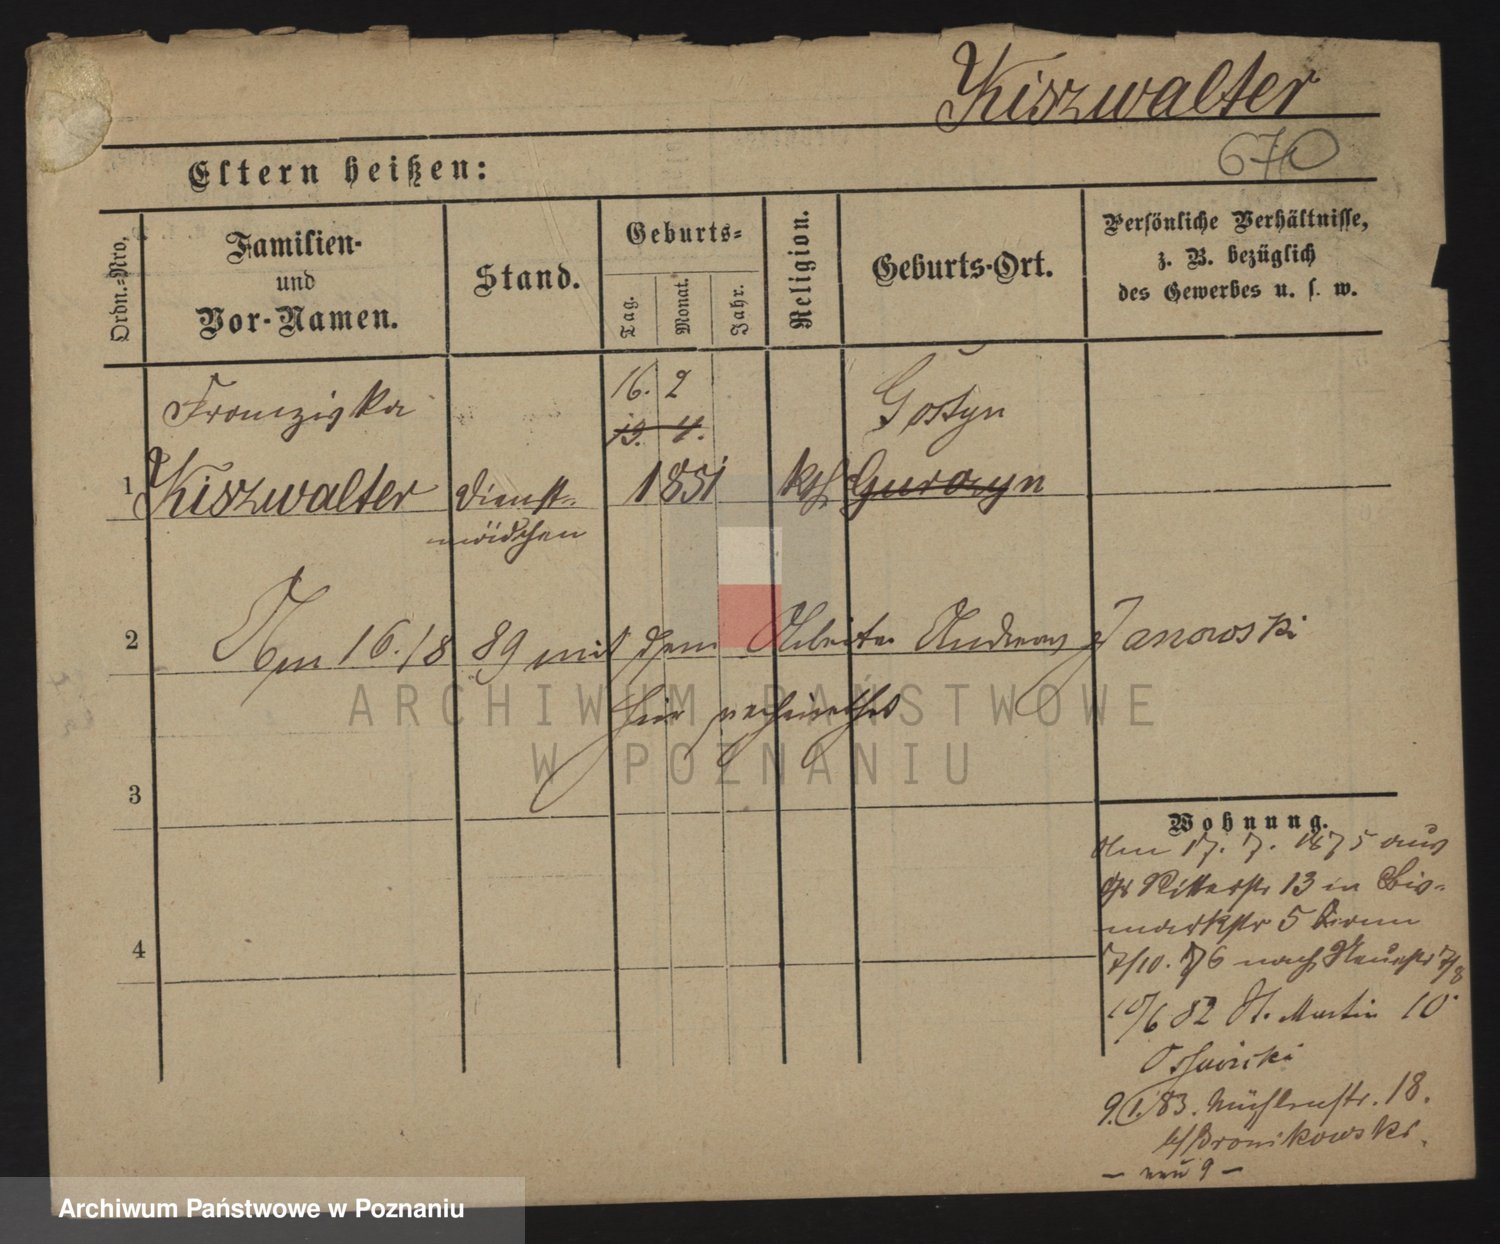 Kiszwalter
670
Eltern heißen:
Ordn.-Nro,
Familien-
und
Vor-Namen.
Stand.
Geburts-
Tag.
Monat.
Jahr.
Religion.
Geburts-Ort.
Persönliche Verhältnisse,
z. B. bezüglich
des Gewerbes u. s. w.
Franziska
16. 2
Gostyn
19. 4.
1 Kiszwalter Dienst- 1851 kth
mädchen
2 Am 16./8 89 mit dem Arbeiter Andreas Janowski
hier verheirathet
3
4
Wohnung.
Am 17. 7. 1875 aus
Ritterstr 13 in Bis-
markstr 5
7/10. 76 nach Neuestr 7/8
10/6 82 St. Martin 10
9./1. 83. Mühlenstr. 18.
b/Bronikowski.
- neu 9 -
ARCHIWUM PAŃSTWOWE
W POZNANIU
Archiwum Państwowe w Poznaniu